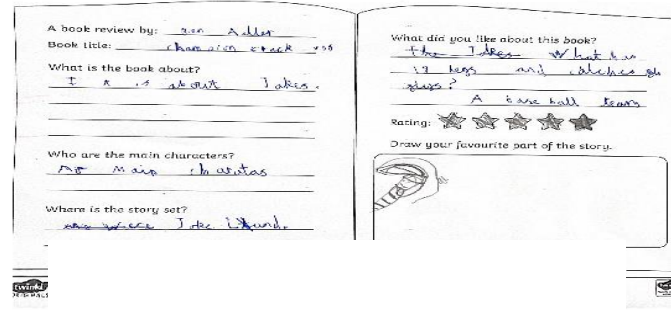 A book review by: Adler
Book title: champion crack
What is the book about?
It is about Jakes.
Who are the main characters?
no main
Where is the story set?
Joke island.
What did you like about this book?
The Jokes What has
18 legs and catches
flys?
A base ball team
Rating:
Draw your favourite part of the story.
twinkl